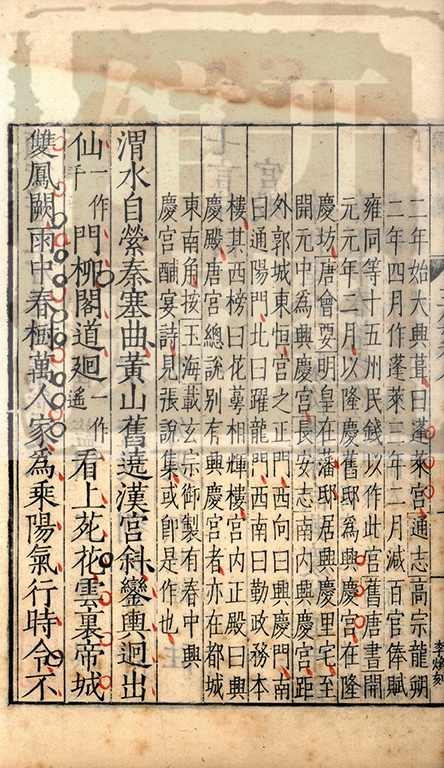 二年始大興葺曰蓬萊宮通志高宗龍朔
二年四月作蓬萊三年二月減百官俸賦
雍同等十五州民錢以作此宮舊唐書開
元元年二月以隆慶舊邸為興慶宮在隆
慶坊唐會要明皇在藩邸居興慶里宅至
開元中為興慶宮長安志南內興慶宮距
外郭城東恒宮之正門西向曰興慶門南
曰通陽門北曰躍龍門西南曰勤政務本
樓其西榜曰花萼相輝樓宮內正殿曰興
慶殿唐宮總說別有興慶宮者亦在都城
東南角按玉海載玄宗御製有春中興
慶宮酺宴詩見張說集或卽是作也
渭水自縈秦塞曲黃山舊遶漢宮斜鑾輿迥出
仙一作千門柳閣道迴一作遙看上苑花雲裏帝城
雙鳳闕雨中春樹萬人家為乘陽氣行時令不